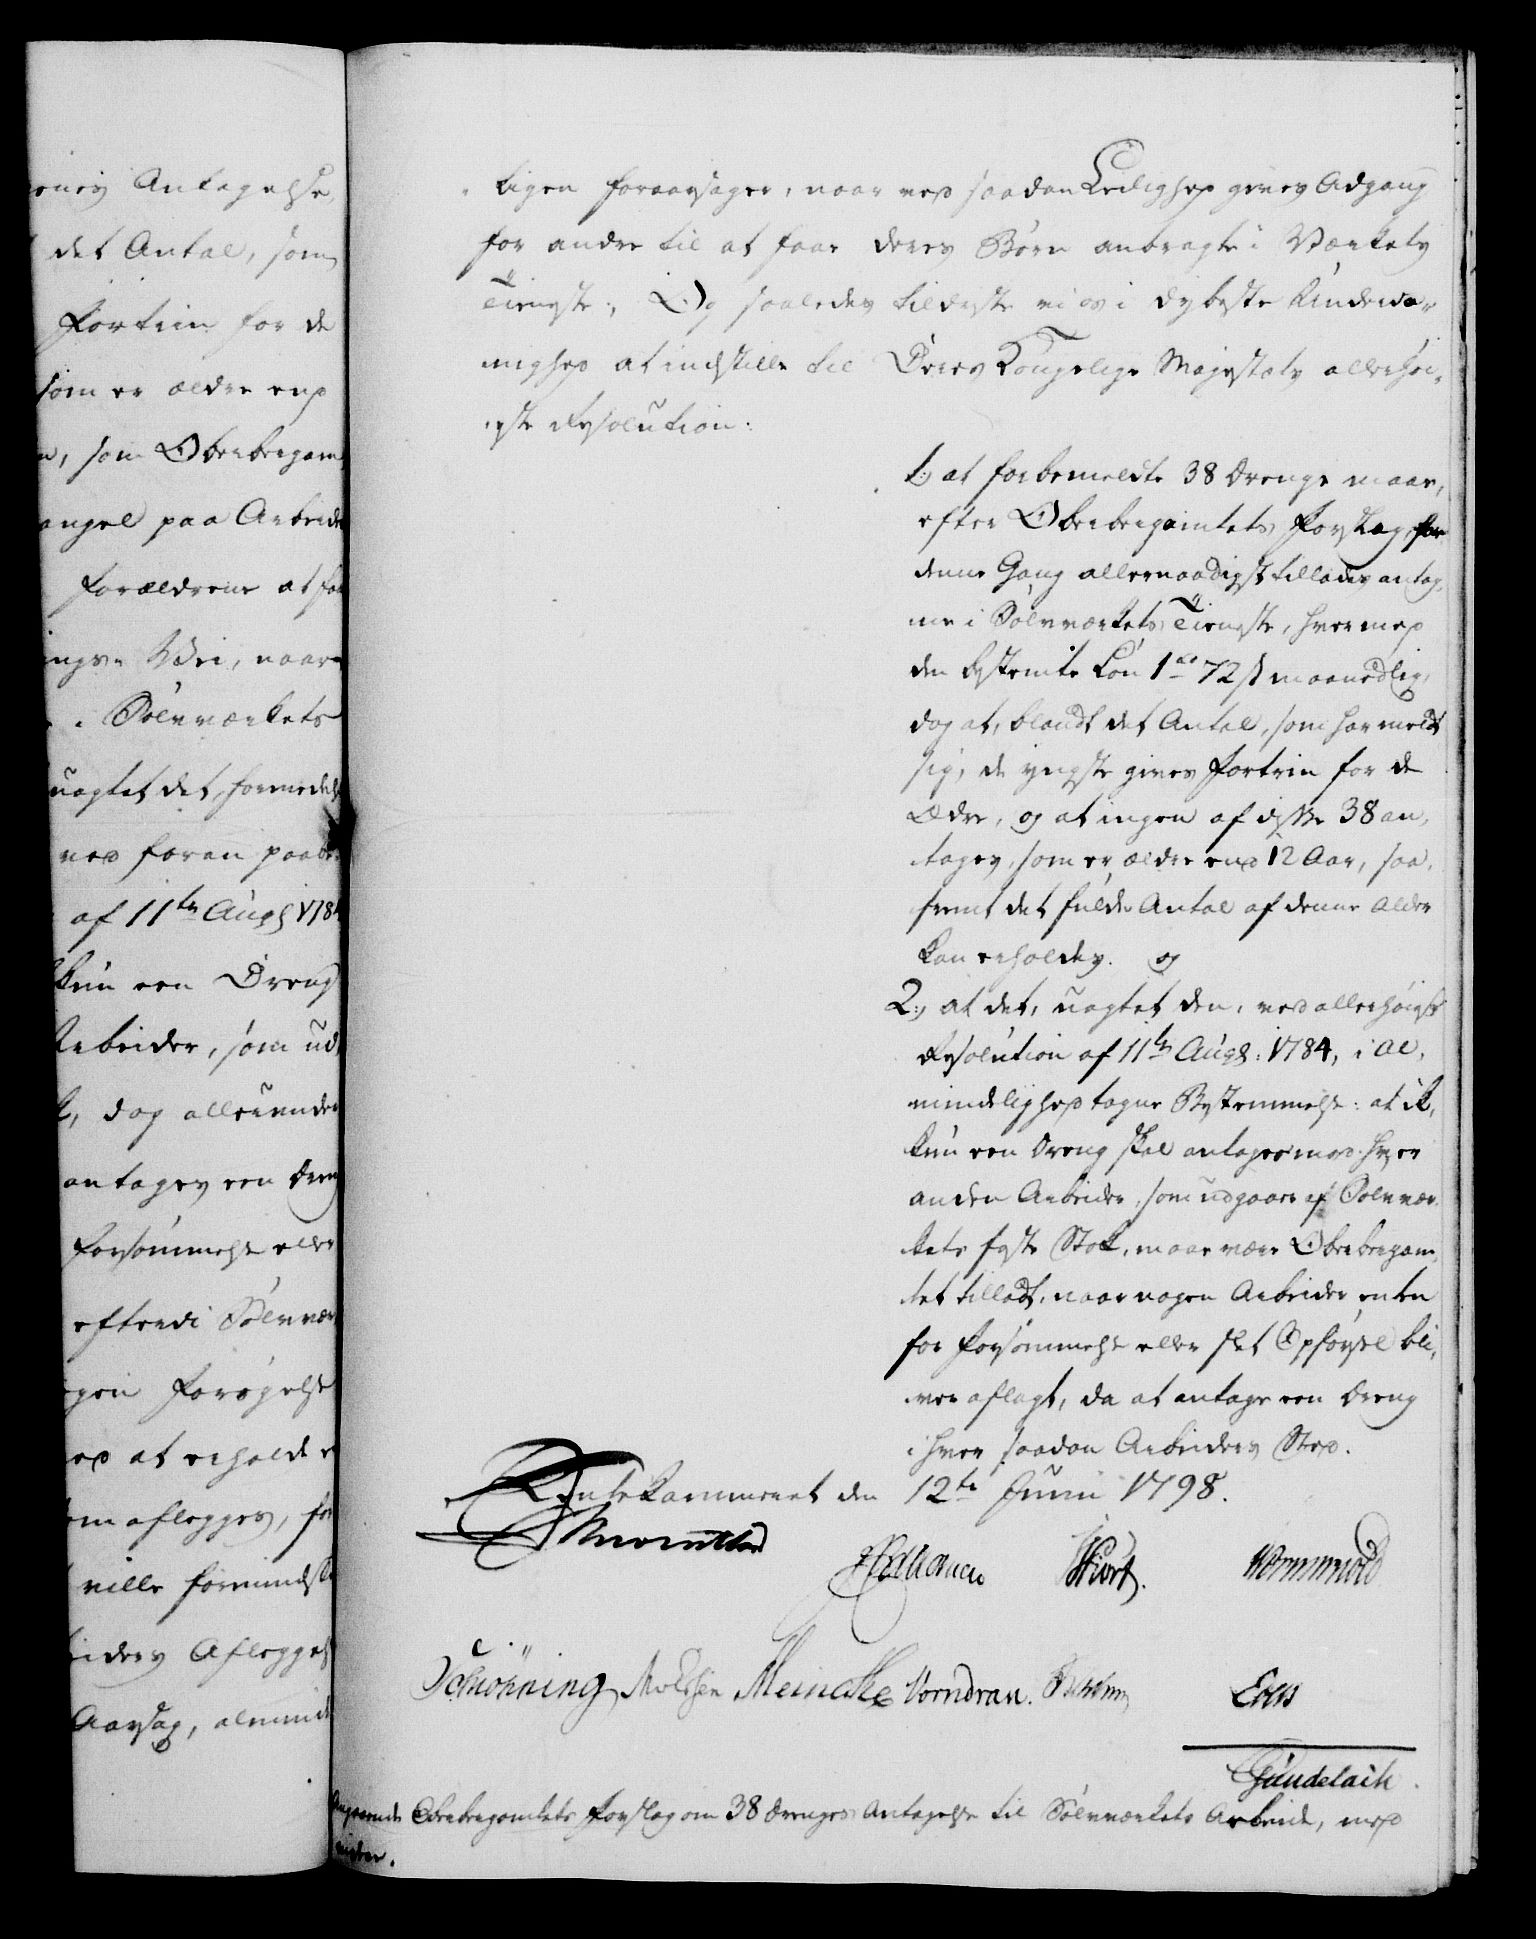 enes Antagelse,
det Antal, som
Fortrin for de
som er ældre end
n, som Oberbergam
angel paa Arbeide
Forældrene at faa
ings Vei, naar
i Sølvværkets
uagtet det, formedelst
ved foran paabe
af 11te Augs 1784
kun een Dreng
Arbeider, som ud
dog allerunder
antages een Dreng
Forsømmelse eller
efterdi Sølvvær
gen Forøgelse
ved at erholde
om aflegges, for
ville formindske
eiders Aflæggel
Aarsag, alminde
ligen foraarsager, naar ved saadan Leilighed gives Adgang
for andre til at faae deres Børn anbragte i Værkets
Tieneste; Og saaledes tilderste vi os i dybeste Underda-
nighed at indstille til Deres Kongelige Majestæts allerhøi-
este Resolution:
1.) at forbemeldte 38 Drenge maae,
efter Oberbergamtets Forslag, for
denne Gang allernaadigst tillades antag-
ne i Sølvværkets Tieneste, hver med
den bestemte Løn 1 rd 72 s maanedlig,
dog at, blandt det Antal, som har meldt
sig, de yngste gives Fortrin for de
Ældre, og at ingen af disse 38 an-
tages, som er ældre end 12 Aar, saa-
fremt det fulde Antal af denne Alder
kan erholdes. og
2.) at det, uagtet den, ved allerhøieste
Resolution af 11te Augs: 1784, i Al-
mindelighed tagne Bestemmelse: at ik-
kun een Dreng skal antages mod hver
anden Arbeider, som udgaaer af Sølvvær-
kets faste Stok, maae være Oberbergam-
tet tilladt, naar nogen Arbeider enten
for Forsømmelse eller slet Opførsel bli-
ver aflagt, da at antage een Dreng
i hver saadan Arbeiders Sted.
Rentekammeret den 12te Junii 1798.
Hiort. Wormskiold
Schiönning Meincke Vorndran.
Gündelach.
Angaaende Oberbergamtets Forslag om 38 Drenges Antagelse til Sølvværkets Arbeide, med